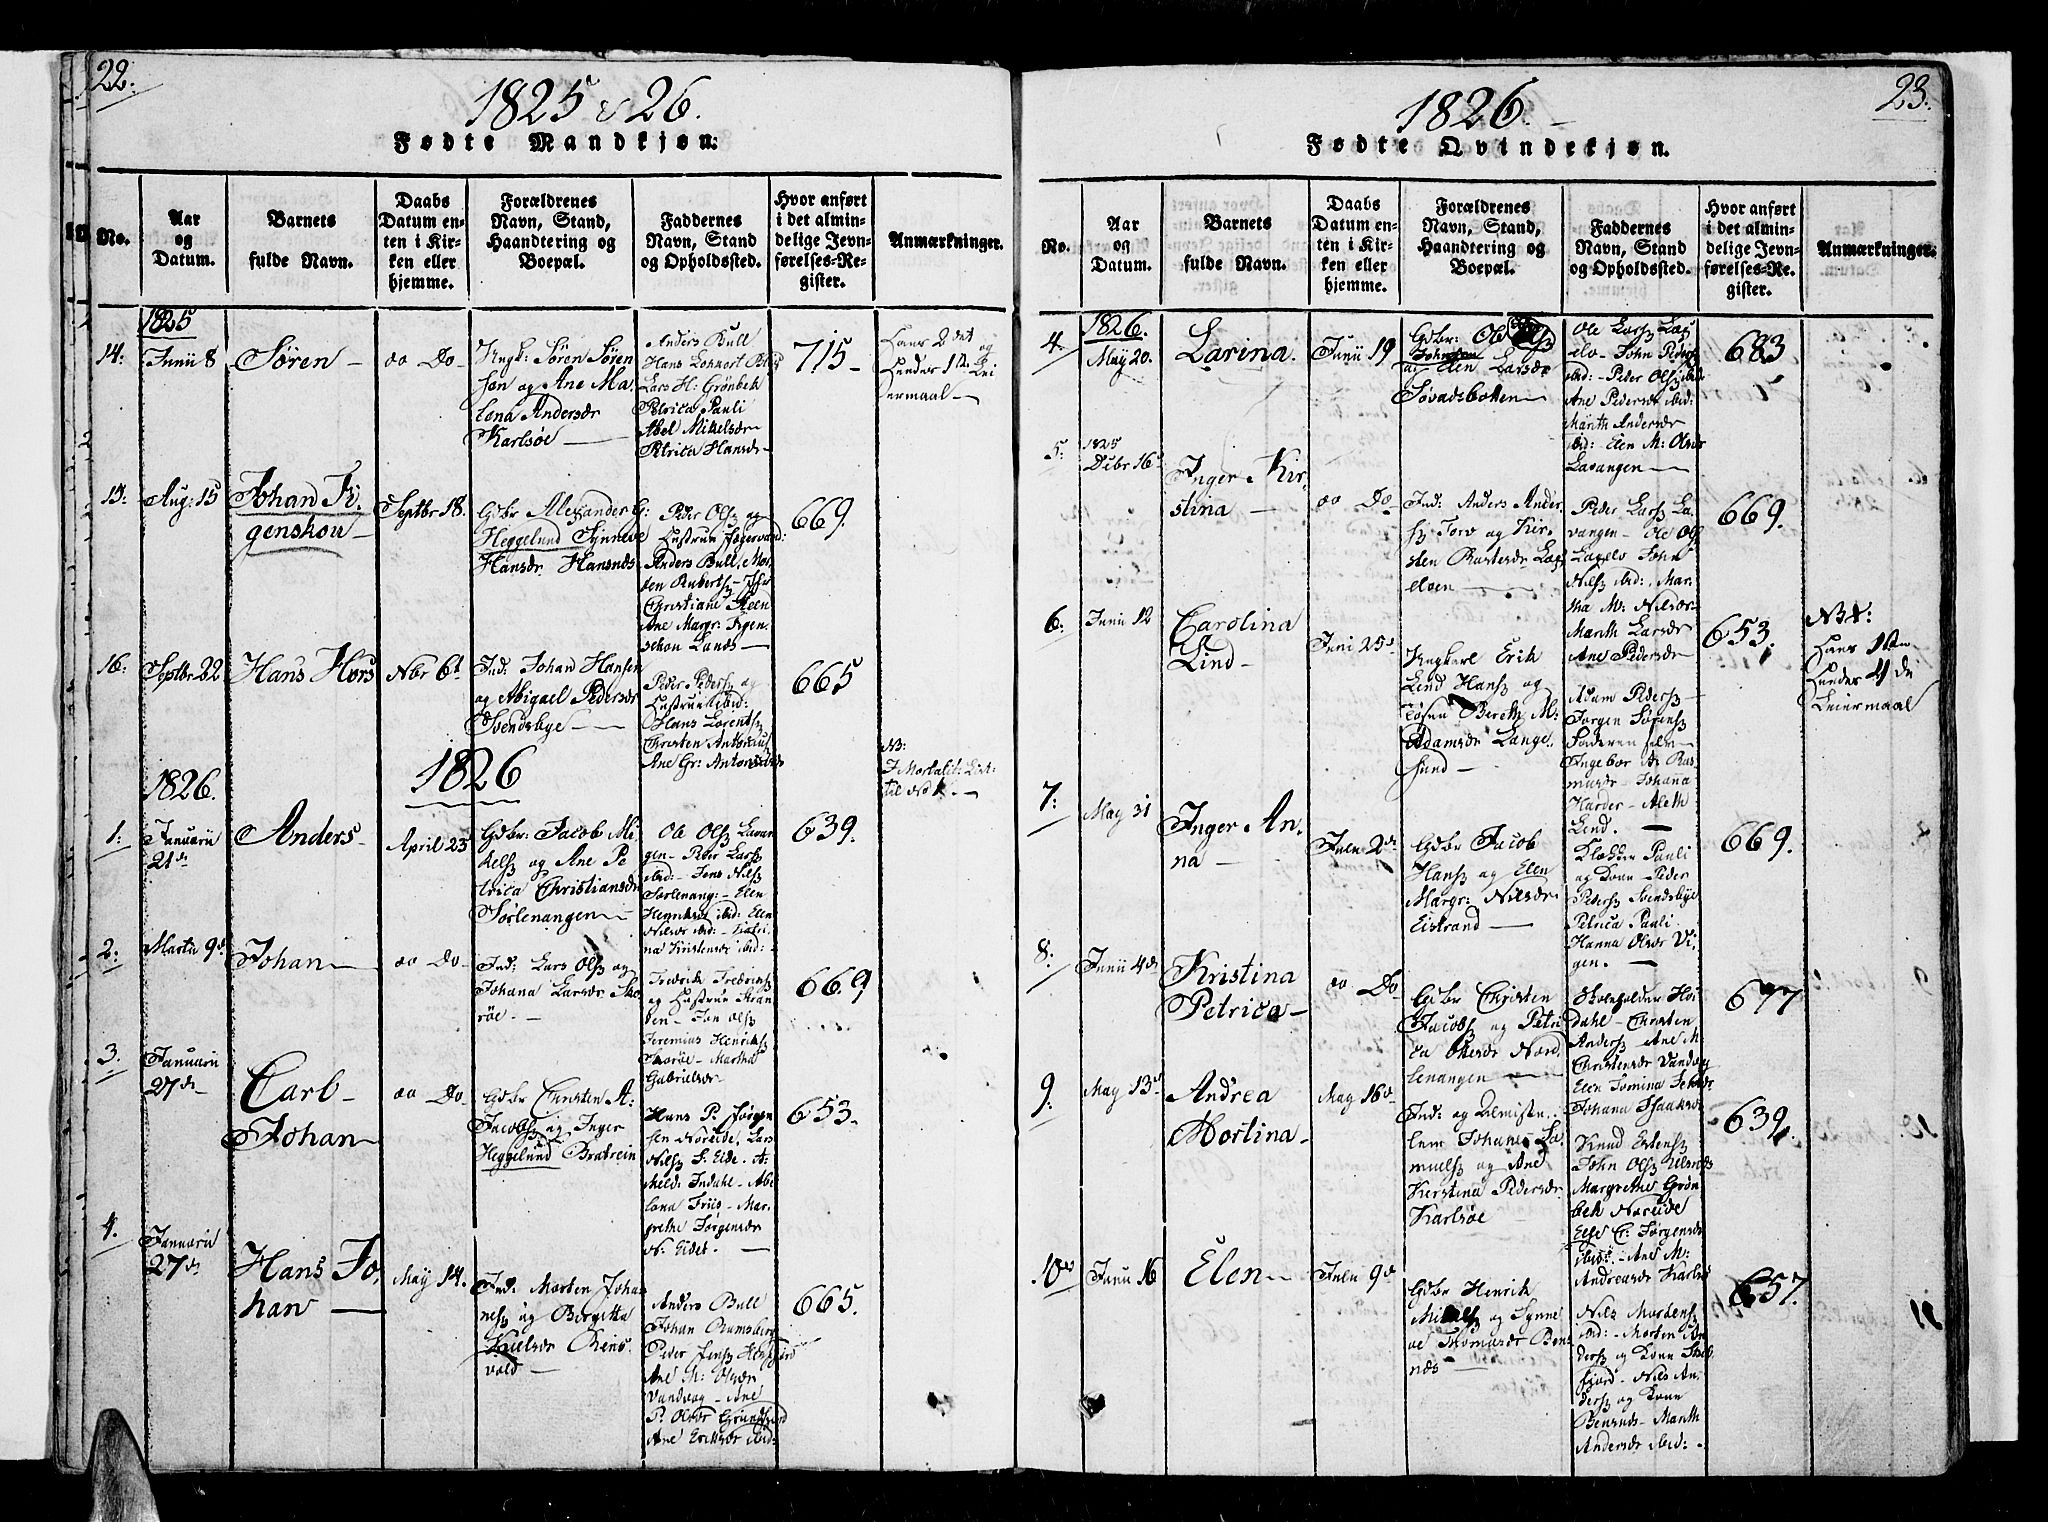 22.
1825 & 26.
Fødte Mandkjøn:
No.
Aar og Datum.
Barnets fulde Navn.
Daabs Datum enten i Kirken eller hjemme.
Forældrenes Navn, Stand, Haandtering og Boepæl.
Faddernes Navn, Stand og Opholdssted.
Hvor anført i det almindelige Jevnførelses-Register.
Anmærkninger.
1825
14:
Junii 8
Søren
oo Do
Ungk: Søren Søren
sen og Ane Ma
lena Andersdr
Karlsøe
Anders Bull
Lars H: Grønbek
Petrica Pauli
Abel Mikelsdr
Petrica Hansdr
715
Hans 2det og
15:
Aug: 15
Johan Fi
genskou
Septbr 18.
Gdbr Alexander G:
Heggelund Synneve
Hansdr Hansnes
Peder Olss og
Hustrue Jægervand:
Anders Bull, Mor
ten
Christiane Steen
Ane Margr: Figen
schou Lands
669.
16:
Septbr 22
Hans Hors
Nbr 6t
Ind: Johan Hansen
og Abigael Pedersdr
Svendsbye
Peder Pederss og
Hustrue ibid:
Hans Lorentss
Christen Antonius
Ane Gr: Antonisdr
665
NB:
I Mortalit: List:
1826
1826.
1:
Januarii
21de
Anders
April 23
Gdbr: Jacob Mi
kelss og Ane Pe
trica Christiansdr
Sørlenangen
Ole Olss Lavan
gen Peder Larss
ibid: Jens Nilss
Sørlenang: Elen
Henriksdr ibid: Elen
Nilsdr ibid: Kathri
na Kristensdr ibid:
639.
2:
Martii 9d
Johan
oo Do
Ind: Lars Olss og
Johana Larsdr Sko
røe.
Fredrik Fredrikss
og Hustrue Stran
den Jon Olss
Jeremias Henrikss
Skorøe Martha
Gabrielsdr
669
3.
Januarii
27de
Carl
Johan
oo Do
Gdbr Christen A:
Jacobss og Inger
Heggelund Bratrein
Hans P. Jørgen
sen Noreide, Lars
Nilss S. Eide. A
melde Indahl Abe
lona Friis Mar
grethe Jørgensdr
N: Eidet.
653.
4.
Januarii
27de
Hans Jo
han
May 14.
Ind: Morten Johan
ness og Birgitte
Kielsdr Reins
vold
Anders Bull
Johan Ramsberg
Peder Jenss
Ane M: Olsdr
Vandvog Ane
P. Olsdr Grundfiord
Ane Eriksdr ibid:
665.
23.
1826.
Fødte Qvindekjøn.
No.
Aar og Datum.
Barnets fulde Navn.
Daabs Datum enten i Kirken eller hjemme.
Forældrenes Navn, Stand, Haandtering og Boepæl.
Faddernes Navn, Stand og Opholdssted.
Hvor anført i det almindelige Jevnførelses-Register.
Anmærkninger.
4.
1826.
May 20.
Larina.
Junii 19
Gdbr: Ole
og Elen Larsdr
Sovadsbotten
Ole Larss Lag
elv John Pederss
ibid: Peder Olss ibid
Ane Pedersdr ibid:
Marith Andersdr
ibid: Elen M: Olsdr
Lavangen
683
5:
1825
Dcbr 16
Inger Kir
stina
oo Do
Ind: Anders Ander
ss Torv og Kir
sten Rastesdr Lag
elven
Peder Larss La
vangen Ole Olss
Lagelv John
Nilss ibid: Mar
tha M: Nilsdr
Marith Larsdr
Ane Pedersdr
669.
6:
Junii 12
Carolina
Lind
Juni 25d
Ungkarl Erik
Lind Hanss og
Tøsen Bereth M:
Adamsdr Lange
sund
Adam Pederss
Jørgen Sørenss
Faderen selv
Ingebor A: Ras
musdr Johana
Harder Aleth
Lind.
653.
NB:
Hans 1ste
Hendes 4de
Leiermaal
7:
May 31
Inger An
na
Julii 2de
Gdbr Jacob
Hanss og Elen
Margr: Nilsdr
Eistrand
Klokker Pauli
og Kone Peder
Pederss Svendsbye
Petrica Pauli
Hanna Olsdr Vi
gen.
669.
8:
Junii 4de
Kristina
Petrica
oo Do
Gdbr Christen
Jacobss og Petri
ca Olesdr Nord
lenangen
Skoleholder Hoi
dahl Christen
Anderss Ane M
Christensdr Vandvog
Elen Tomina
Johana Isaaksdr
677
9.
May 13d
Andrea
Mortina
May 16d
Ind: og Almisse
lem Johanes Sa
muelss og Ane
Kerstina Pedersdr
Karlsøe
Knud
John Olss
Margrethe Grøn
bek Noreide
Else C: Jørgensdr
ibid: Ane M:
Andreasdr Karlsø
639.
10
Junii 16
Elen
Julii 9d
Gdbr Henrik
Mikelss og Synne
ve Thomasdr Bens
næs
Nils Mortenss
ibid: Morten An
derss og Kone Skib
fjord Nils An
derss og Kone
Bensnes Marith
Andersdr ibid:
657.